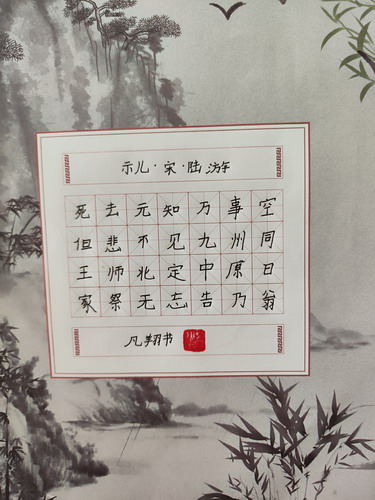 示儿·宋·陆游
死去元知万事空
但悲不见九州同
王师北定中原日
家祭无忘告乃翁
凡翔书